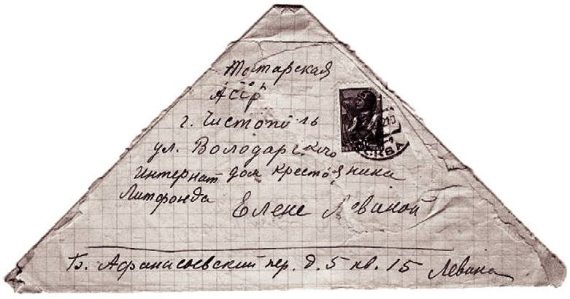 Татарская
АССР
г. Чистополь
ул. Володарского
Интернат дом крестьянина
Литфонда
Елене Левиной
Б. Афанасьевский пер. д. 5 кв. 15 Левина